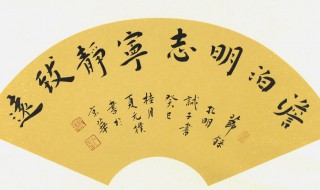 澹泊明志寧靜致遠
節錄
孔明
誡子書
癸巳
桂月
夏元樸
書於
京華